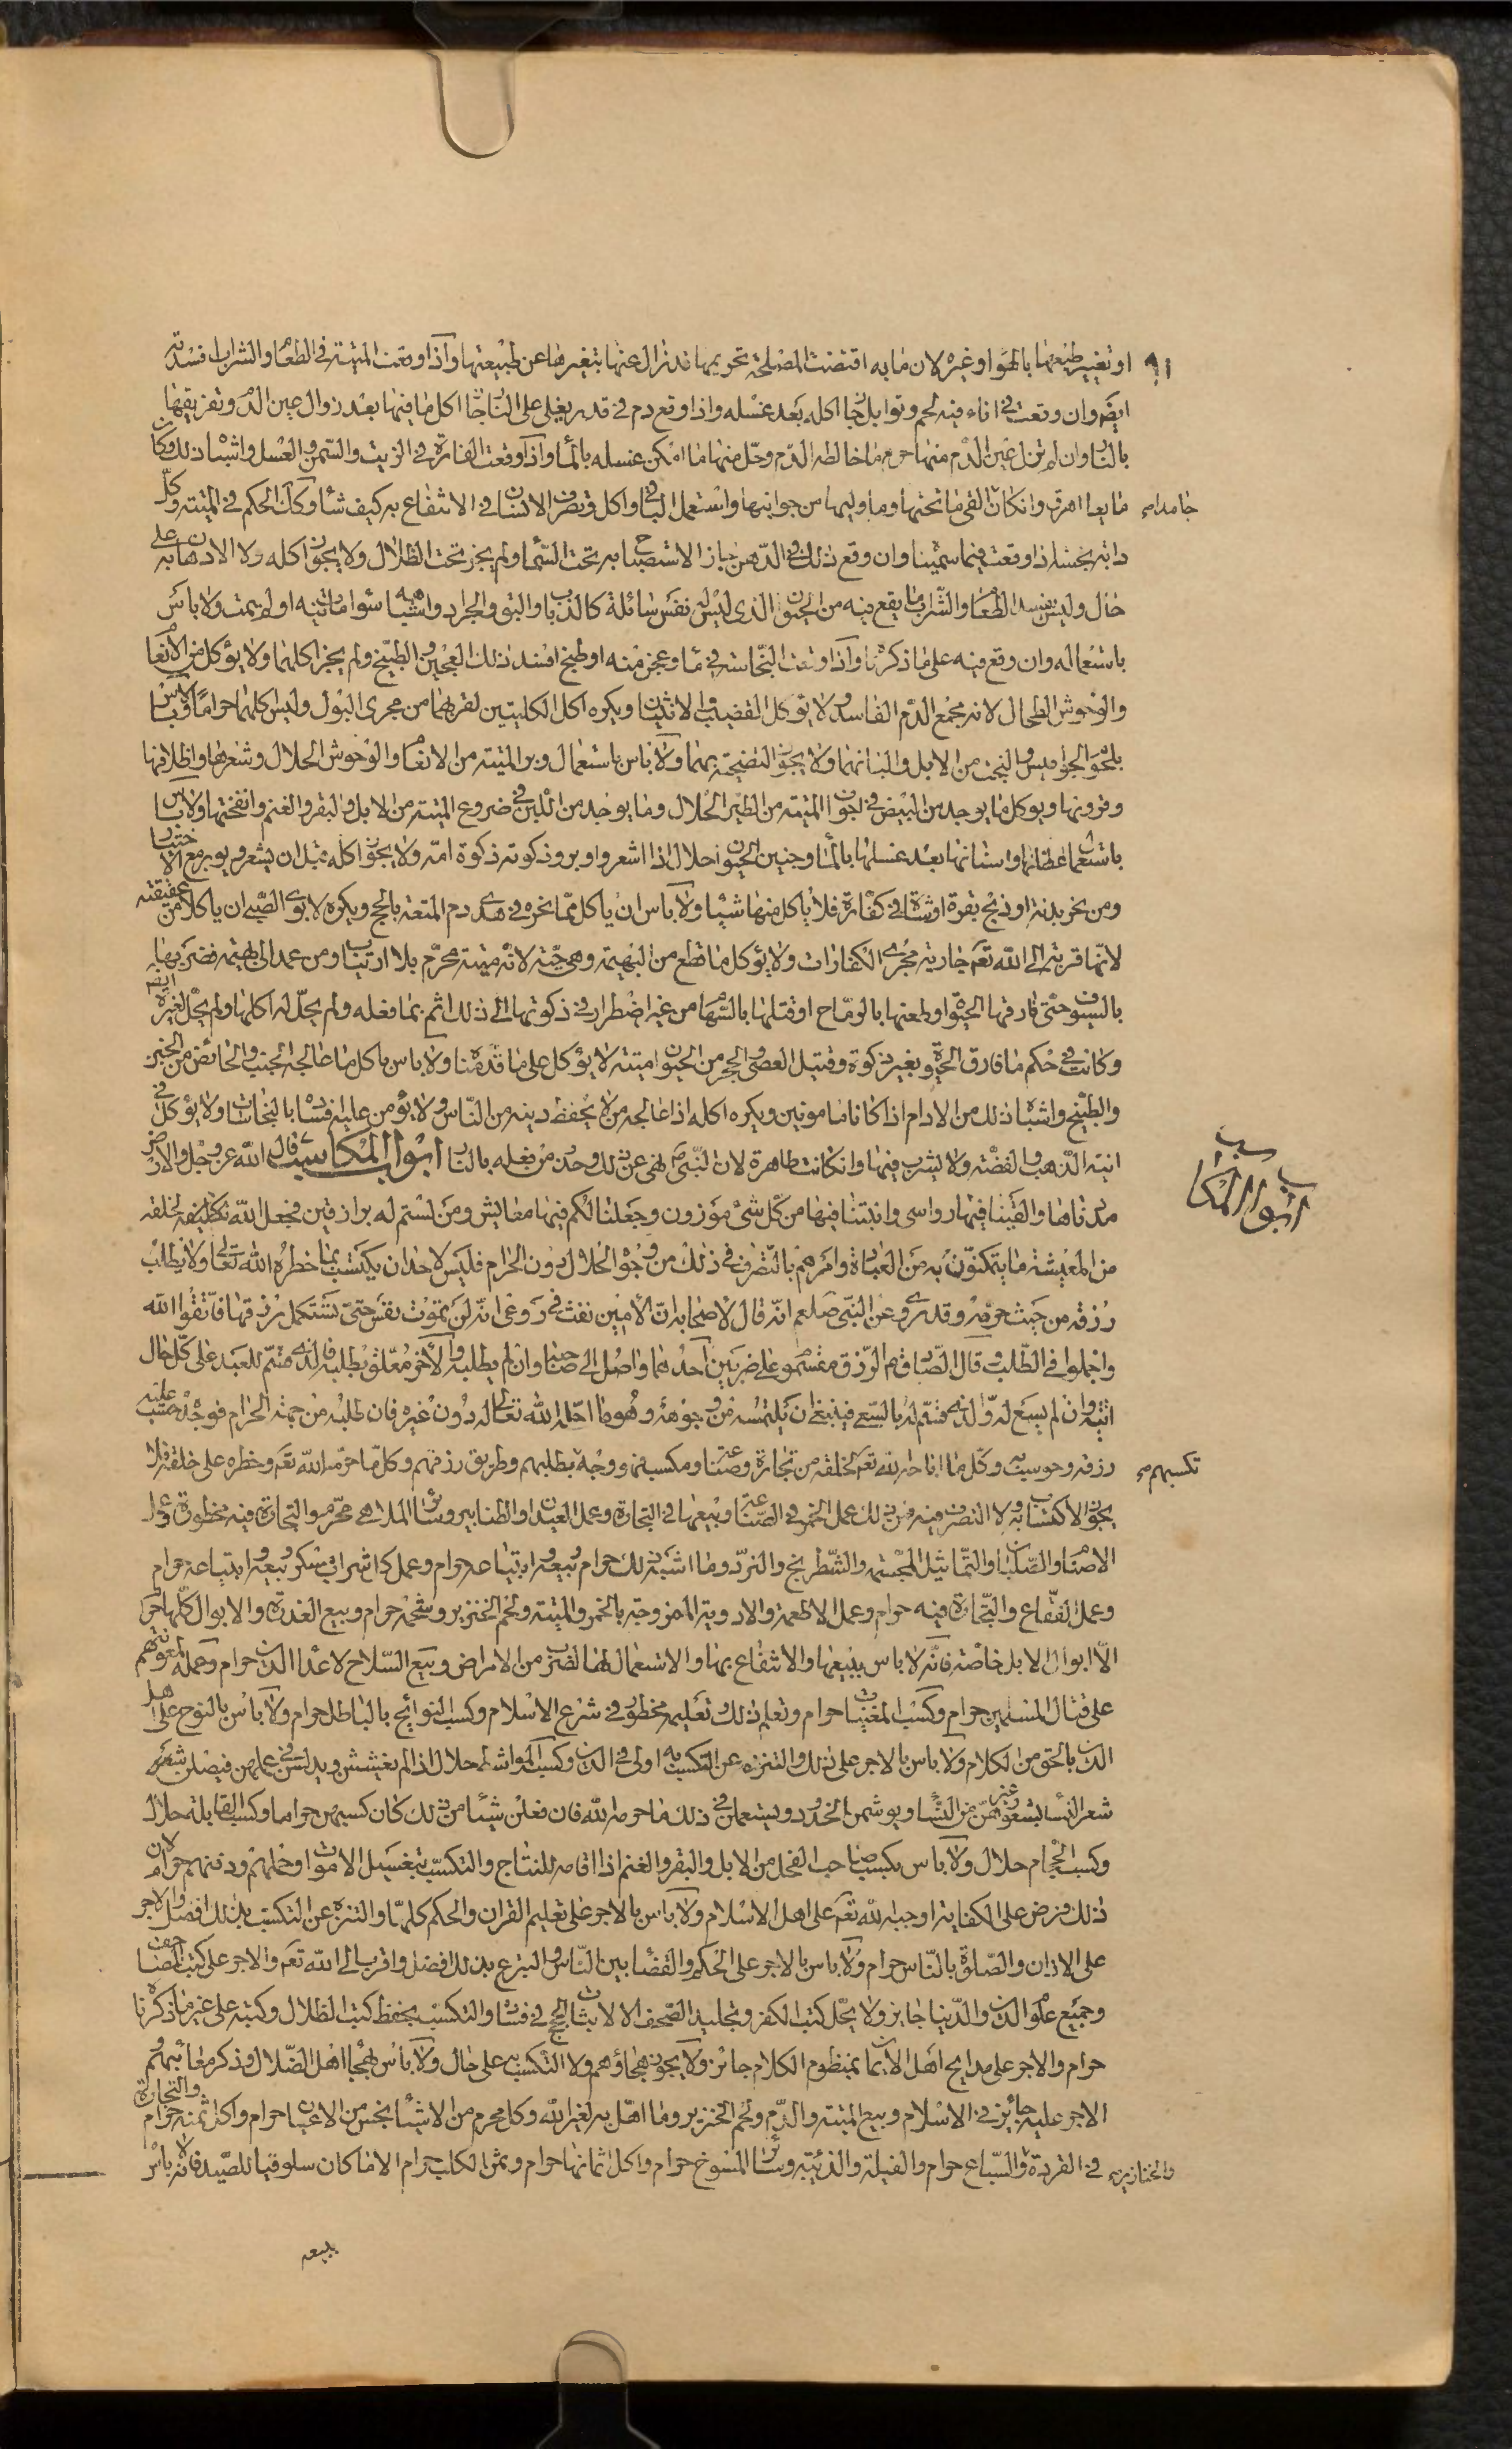 ٩١
او تغيير طبيعتها بالهواء او غيره لان ما به اقتضت المصلحة تحريمها قد زال عنها بتغيرها عن طبيعتها واذا وقعت الميتة في الطعام والشراب افسدته
ايضا وان وقعت في اناء فيه لحم وتوابل جاز اكله بعد غسله واذا وقع دم في قدر يغلى على النار جاز اكل ما فيها بعد زوال عين الدم وتفريقها
بالنار وان لم تزل عين الدم منها حرم ما خالطه الدم وحل منها ما امكن غسله بالماء واذا وقعت الفارة في الزيت والسمن والعسل واشباه ذلك وكان
مايعا اهرق وان كان جامدا القى ما تحتها وما وليها من جوانبها واستعمل الباقي واكل وتصرف الانسان في الانتفاع به كيف شاء وكذلك الحكم في الميتة وكل
دابة نجسة اذا وقعت فيما سميناه وان وقع ذلك في الدهن جاز الاستصباح به تحت السماء ولم يجز تحت الظلال ولا يجوز اكله ولا الادهان به على
حال وليس يفسد الطعام والشراب ما يقع فيه من الحيوان الذي ليس له نفس سائلة كالذباب والبق والجراد واشباهه سواء مات فيه او لم يمت ولا باس
باستعماله وان وقع فيه على ما ذكرناه واذا وقعت النجاسة في ماء وعجن منه او طبخ افسد ذلك العجين والطبيخ ولم يجز اكلهما ولا يؤكل من الانعام
والوحوش الطحال لانه مجمع الدم الفاسد ولا يؤكل القضيب والانثيان ويكره اكل الكليتين لقربهما من مجرى البول وليس اكلهما حراما ولا باس
بلحوم الجواميس والبخت من الابل والبانهما ولا يجوز التضحية بهما ولا باس باستعمال وبر الميتة من الانعام والوحوش الحلال وشعرها واظلافها
وقرونها ويوكل ما يوجد من البيض في اجواف الميتة من الطير الحلال وما يوجد من اللبن في ضروع الميتة من الابل والبقر والغنم وانفحتها ولا باس
باستعمال عظامها واسنانها بعد غسلها بالماء وجنين الحيوان حلال اذا اشعر واوبر وذكوته ذكوة امه ولا يجوز اكله قبل ان يشعر ويوبر مع الاختيار
ومن نحر بدنة او ذبح بقرة او شاة في كفارة فلا ياكل منها شيئا ولا باس ان ياكل مما نحره في هدى دم المتعة بالحج ويكره لابوى الصبي ان ياكلا من عقيقته
لانها قربة الى الله تعم جارية مجرى الكفارات ولا يؤكل ما قطع من البهيمة وهي حية لانه ميتة محرم بلا ارتياب ومن عمد الى بهيمة فضربها
بالسيوف حتى فارقها الحيوة او طعنها بالرماح او قتلها بالسهام من غير اضطرار في ذكوتها الى ذلك اثم بما فعله ولم يحل له اكلها ولم يحل لغيره ايضا
وكانت في حكم ما فارق الحيوة بغير ذكوة وقتيل العصى والحجر من الحيوان ميتة لا يؤكل على ما قدمناه ولا باس باكل ما عالجه الجنب والحائض من الخبز
والطبخ واشباه ذلك من الادام اذا كانا مامونين ويكره اكله اذا عالجه من لا يحفظ دينه من الناس ولا يؤمن عليه فساده بالنجاسات ولا يؤكل في
انية الذهب والفضة ولا يشرب فيها وان كانت طاهرة لان النبي ص نهى عن ذلك وحذر من فعله بالنار ابواب المكاسب قال الله عز وجل والارض
مددناها والقينا فيها رواسى وانبتنا فيها من كل شئ موزون وجعلنا لكم فيها معايش ومن لستم له برازقين فجعل الله تكليفه لخلقه
من المعيشة ما يتمكنون به من العبادة وامرهم بالتصرف في ذلك من وجوه الحلال دون الحرام فليس لاحد ان يكتسب بما خطره الله تعالى ولا يطلب
رزقه من حيث حرمه وقد روى عن النبي صلعم انه قال لاصحابه ان الامين نفث في روعى انه لن تموت نفس حتى تستكمل رزقها فاتقوا الله
واجملوا في الطلب وقال الصادق ع الرزق مقسوم على ضربين احدهما واصل الى صاحبه وان لم يطلبه والاخر معلق بطلبه فالذي قسم للعبد على كل حال
اتيه وان لم يسع له والذي قسم له بالسعي فينبغي ان يلتمسه من وجوهه وهو ما احله الله تعالى له دون غيره فان طلبه من جهة الحرام فوجده حسب عليه
رزقه وحوسب به وكل ما اباحه الله تعم لخلقه من تجارة وصناعة ومكسب فهو وجهة مطلبهم وطريق رزقهم وكل ما حرمه الله تعم وخطره على خلقه فلا
يجوز الاكتساب به ولا التصرف فيه فمن ذلك عمل الخمر في الصناعة وبيعها في التجارة وعمل العيدان والطنابير وسائر الملاهى محرم والتجارة فيه محظورة وعمل
الاصنام والصلبان والتماثيل المجسمة والشطرنج والنرد وما اشبه ذلك حرام وبيعه وابتياعه حرام وعمل كل شراب مسكر وبيعه وابتياعه حرام
وعمل الفقاع والتجارة فيه حرام وعمل الاطعمة والادوية الممزوجة بالخمر والميتة ولحم الخنزير وشحمه حرام وبيع العذرة والابوال كلها حرام
الا ابوال الابل خاصة فانه لا باس ببيعها والانتفاع بها والاستعمال لها لضرب من الامراض وبيع السلاح لاعداء الدين حرام وعمله لمعونتهم
على قتال المسلمين حرام وكسب المغنيات حرام وتعلم ذلك وتعليمه محظور في شرع الاسلام وكسب النوائح بالباطل حرام ولا باس بالنوح على اهل
الدين بالحق من الكلام ولا باس بالاجر على ذلك والتنزه عن التكسب به اولى في الدين وكسب المواشط حلال اذا لم يغششن ويدلسن في عملهن فيصلن شعر
شعر النساء بشعور غيرهن من النساء ويوشمن الخدود ويستعملن في ذلك ما حرمه الله فان فعلن شيئا من ذلك كان كسبهن حراما وكسب القابلة حلال
وكسب الحجام حلال ولا باس بكسب صاحب الفحل من الابل والبقر والغنم اذا اقامه للنتاج والتكسب بتغسيل الاموات وحملهم ودفنهم حرام لان
ذلك فرض على الكفاية اوجبه الله تعم على اهل الاسلام ولا باس بالاجر على تعليم القران والحكم كلها والتنزه عن التكسب بذلك افضل والاجر
على الاذان والصلوة بالناس حرام ولا باس بالاجر على الحكم والقضاء بين الناس والتبرع بذلك افضل واقرب الى الله تعم والاجر على كتب المصاحف
وجميع علوم الدين والدنيا جايز ولا يحل كتب الكفر وتجليد الصحف الا لاثبات الحجج في فساده والتكسب بحفظ كتب الضلال وكتبه على غير ما ذكرنا
حرام والاجر على مدايح اهل الايمان بمنظوم الكلام جائز ولا يجوز هجاؤهم ولا التكسب به على حال ولا باس بهجاء اهل الضلال وذكر معائبهم
الاجر عليه جائز في الاسلام وبيع الميتة والدم ولحم الخنزير وما اهل به لغير الله وكل محرم من الاشياء نجس من الاعيان حرام واكل ثمنه حرام والتجارة
في القردة والسباع حرام والفيلة والذئبة وسائر المسوخ حرام واكل اثمانها حرام وثمن الكلب حرام الا ما كان سلوقيا للصيد فانه لا باس
جامدا صح
ابواب المكاسب
تكسبهم صح
والخنازير صح
ببيعه